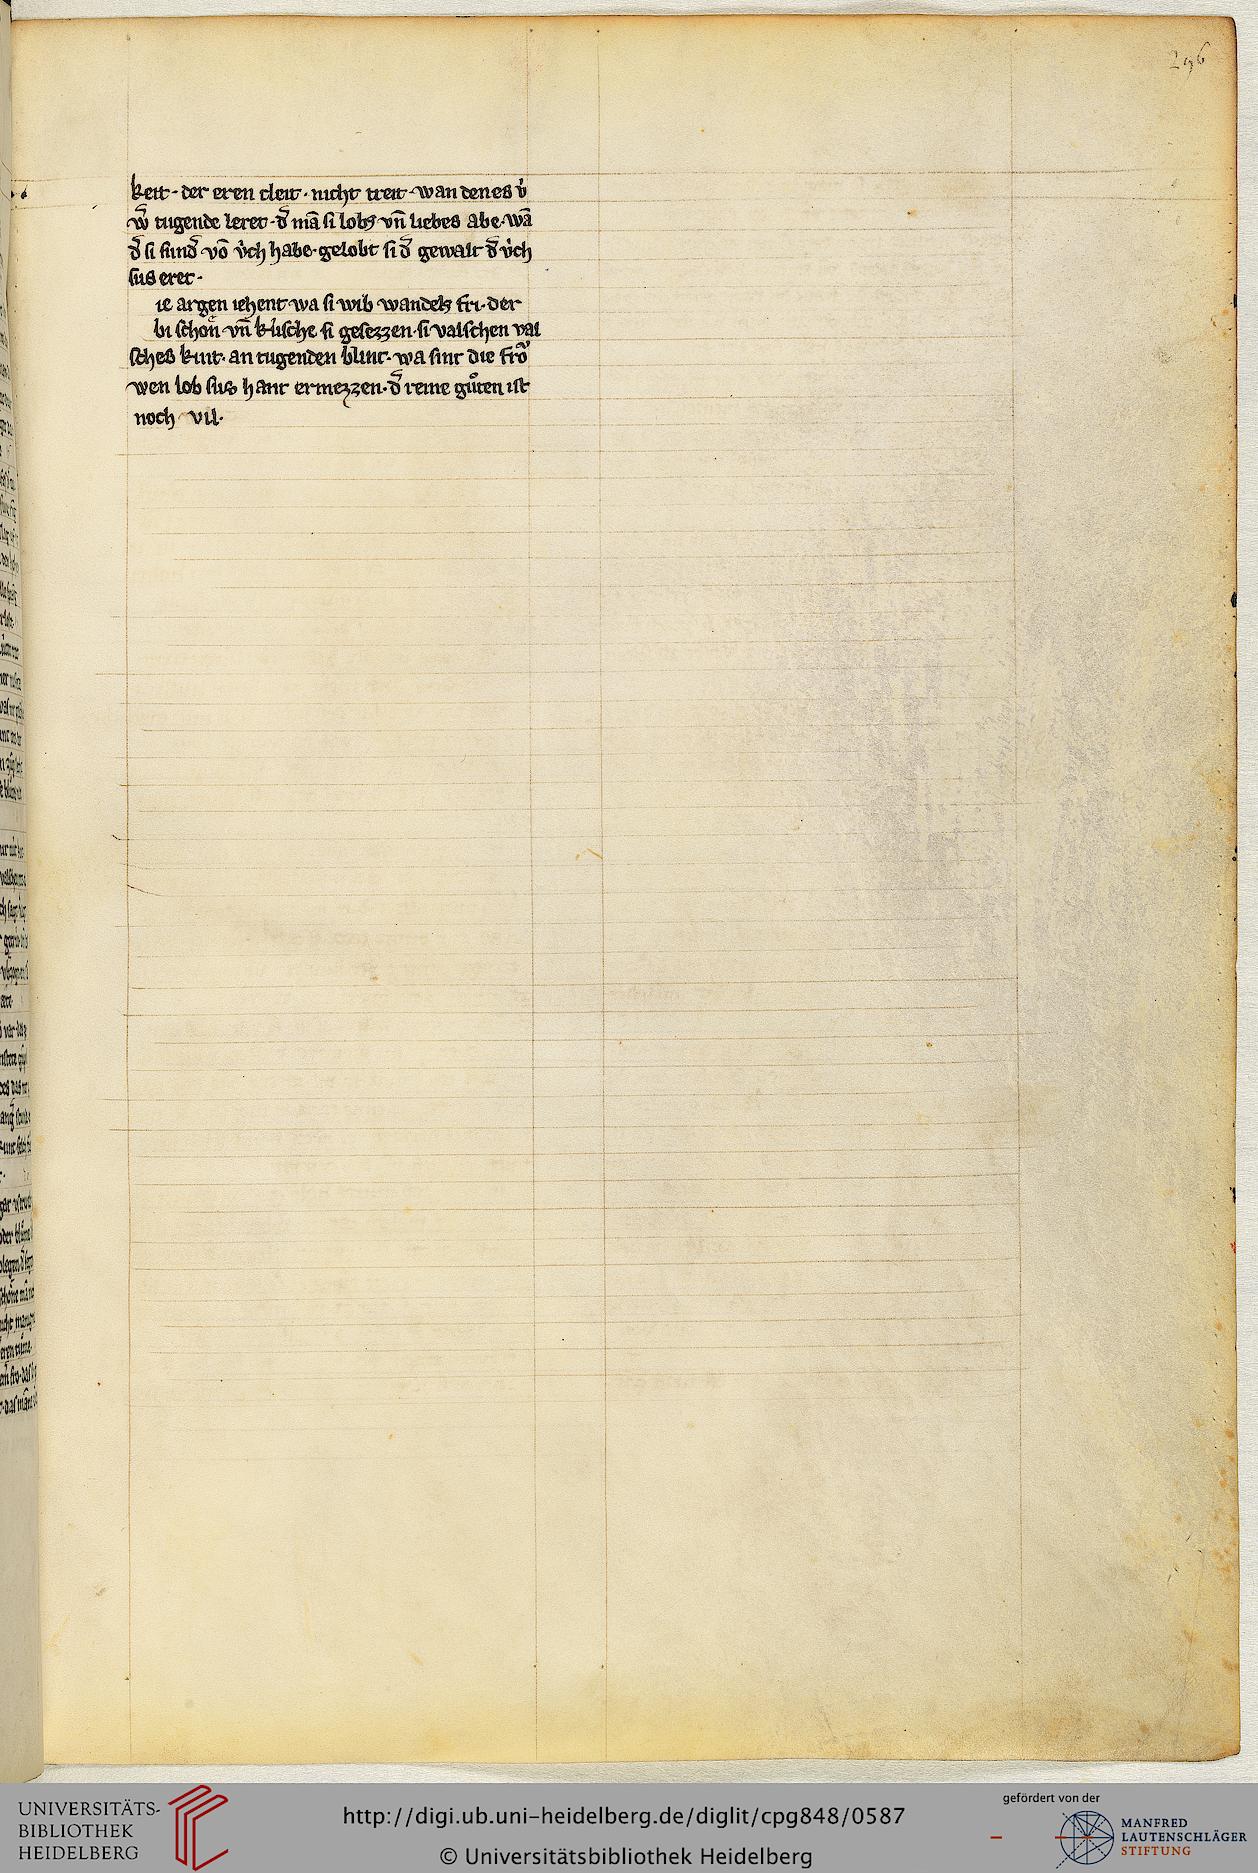 296
keit · der eren cleit · nicht treit · wan denes v̓
w̄ tugende leret · d̄ mā si lobs vn̄ liebes abe · wā
d̄ si sund̄ vō v̓ch habe · gelobt si d̄ gewalt d̄ v̓ch
sus eret ·
ie argen iehent wa si wib wandels fri · der
bi schoͤn vn̄ kusche si gesezzen · si valschen val
sches kint · an tugenden blint · wa sint die froͮ
wen lob sus hant ermezzen · d̄ reine guͦten ist
noch vil ·
UNIVERSITÄTS-
BIBLIOTHEK
HEIDELBERG
http://digi.ub.uni-heidelberg.de/diglit/cpg848/0587
© Universitätsbibliothek Heidelberg
gefördert von der
MANFRED
LAUTENSCHLÄGER
STIFTUNG